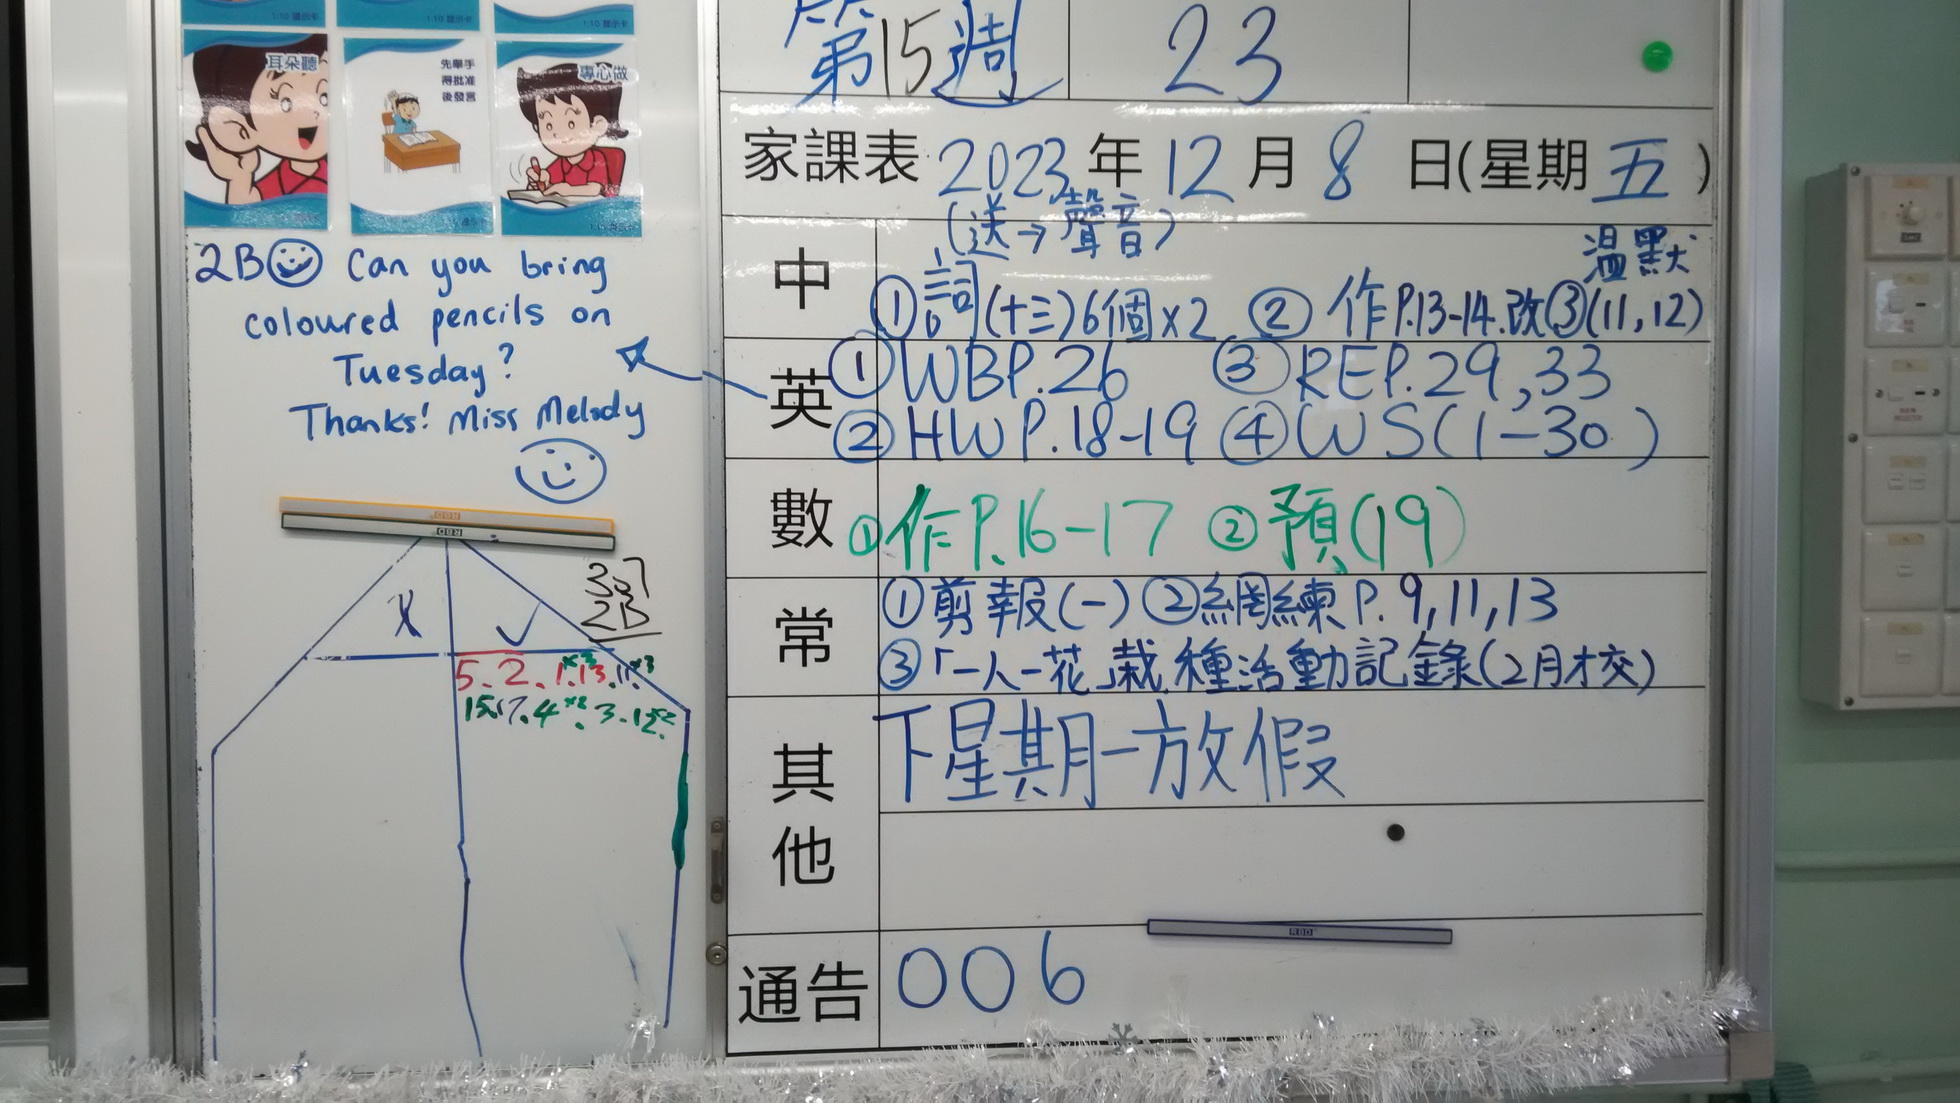 耳朵聽
先舉手
得批准
後發言
專心做
2B Can you bring
coloured pencils on
Tuesday?
Thanks! Miss Melody
RBD
RBD
x
✓
307
2B
第15週
23
家課表 2023 年 12 月 8 日(星期 五)
(送→聲音)
溫默
中 ①詞(十三)6個x2 ② 作P.13-14.改③(11,12)
英 ①WBP.26 ③REP.29,33
②HWP.18-19 ④WS(1-30)
數 ①作P.16-17 ②預(19)
常 ①剪報(一) ②網練P.9,11,13
③「一人一花」栽種活動記錄(2月才交)
其他 下星期一放假
RBD
通告 006